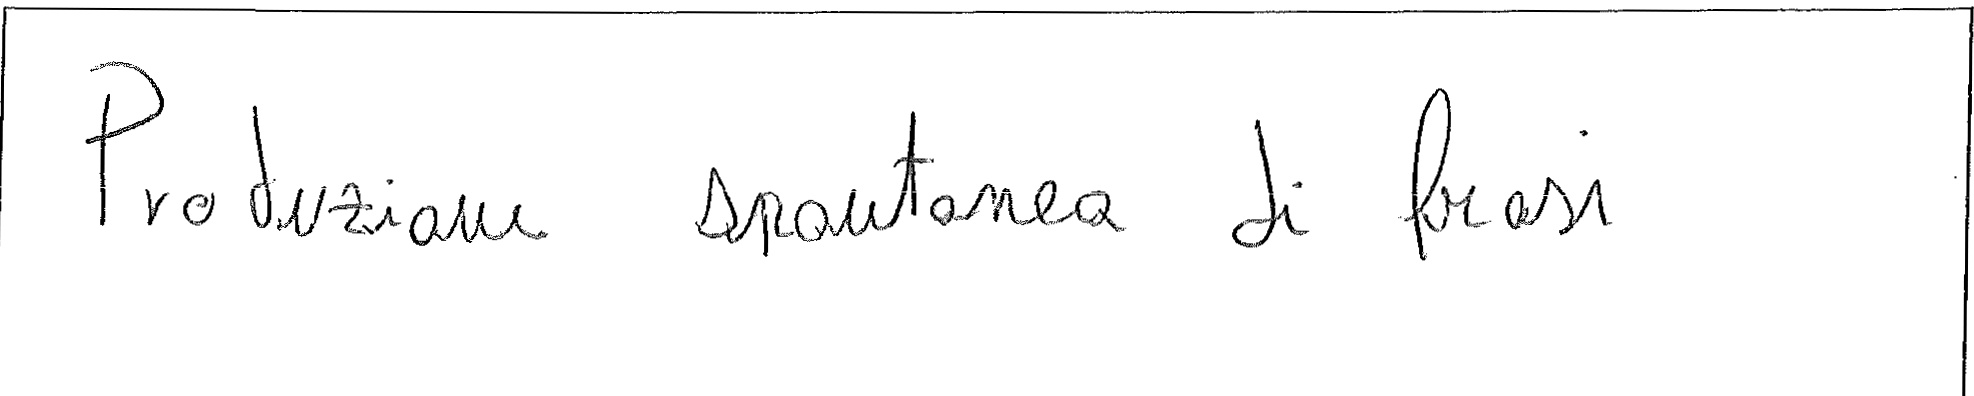 Produzione spontanea di frasi